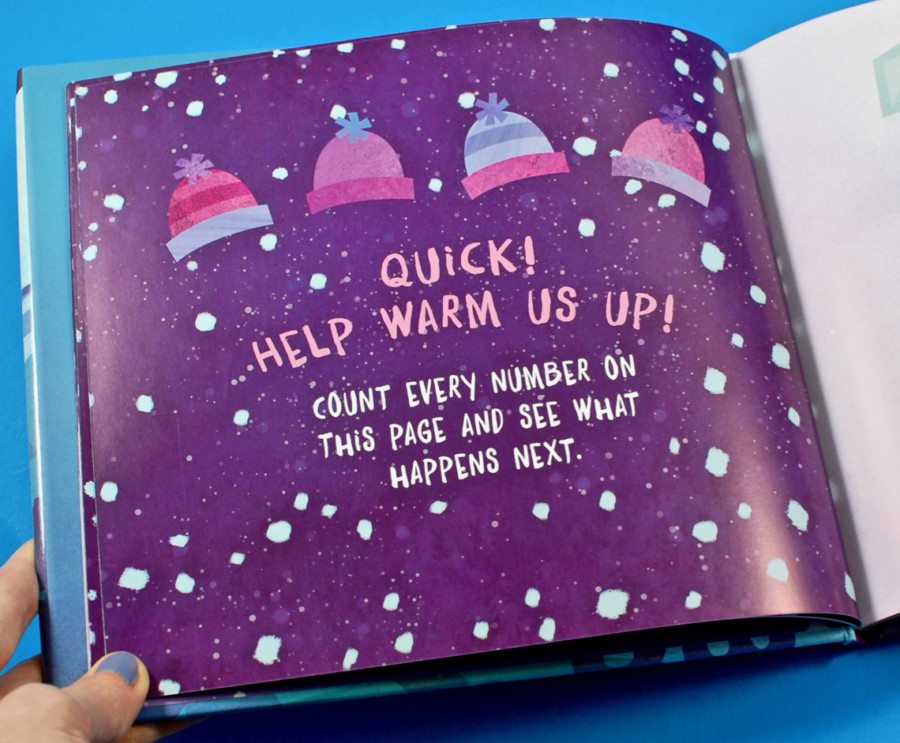 QUiCK!
HELP WARM US UP!
COUNT EVERY NUMBER ON
THiS PAGE AND SEE WHAT
HAPPENS NEXT.